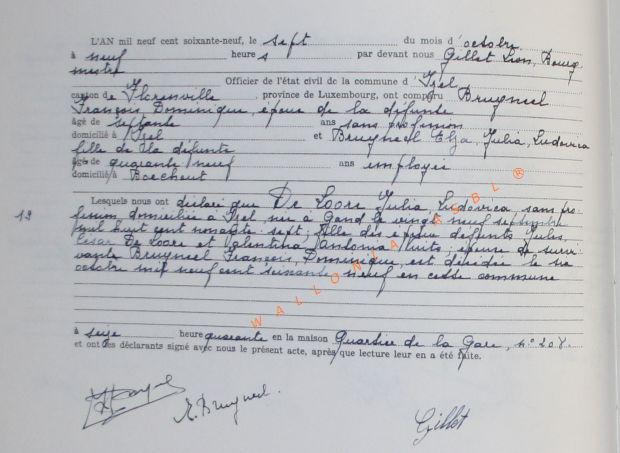 L'AN mil neuf cent soixante-neuf, le sept du mois d'octobre
à neuf heures par devant nous Gillet Léon, Bourg
mestre
Officier de l'état civil de la commune d'Izel
canton de Florenville, province de Luxembourg, ont comparu Bruyneel
François, Dominique, époux de la défunte
âgé de septante ans sans profession
domicilié à Izel et Bruyneel Elza, Julia, Ludovica
fille de la défunte
âgé de quarante neuf ans employée
domicilié à Boechout
Lesquels nous ont déclaré que De Loore Julia, Ludovica, sans pro
12
fession domiciliée à Izel née à Gand le vingt neuf septembre
mil huit cent nonante sept, fille des époux défunts Jules,
César De Loore et Valentina, épouse de survi
vante Bruyneel François, Dominique, est décédée le six
octobre mil neuf cent soixante neuf en cette commune
à seize heure quarante en la maison Quartier de la Gare, n° 208.
et ont les déclarants signé avec nous le présent acte, après que lecture leur en a été faite.
E. Bruyneel.
Gillet
WALLONIA ASBL ®